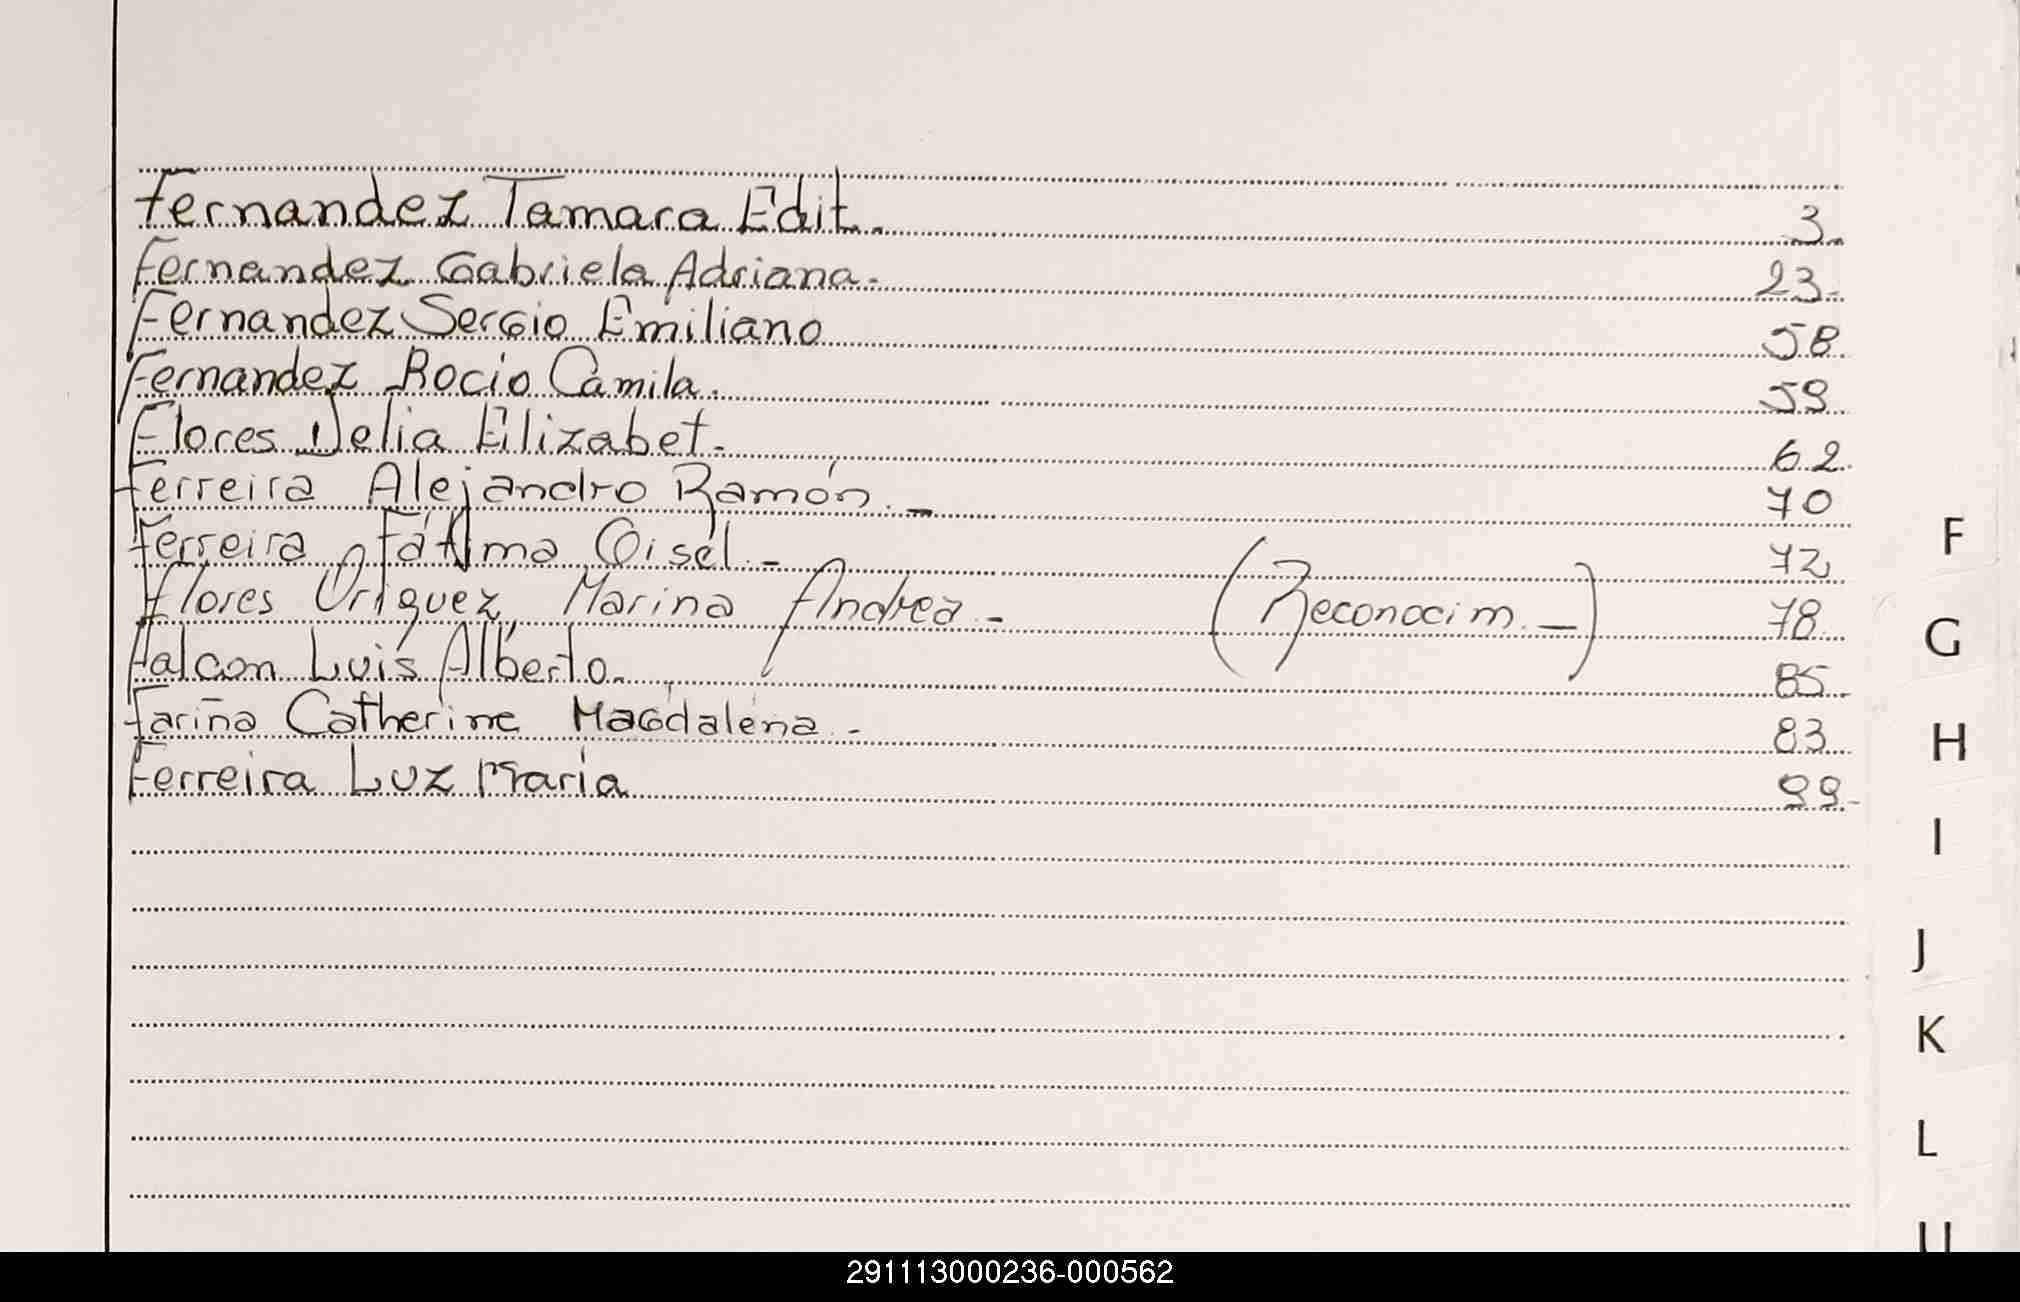 Fernandez Tamara Edit. 3
Fernandez Gabriela Adriana. 23
Fernandez Sergio Emiliano 58
Fernandez Rocio Camila. 59
Flores Delia Elizabet. 62
Ferreira Alejandro Ramón. 70
Ferreira Fátima Gisel. 72
Flores Uriguez, Marina Andrea - (Reconocim. -) 78
Falcon Luis Alberto. 85
Fariña Catherine Magdalena - 83
Ferreira Luz Maria 99
F
G
H
I
J
K
L
291113000236-000562